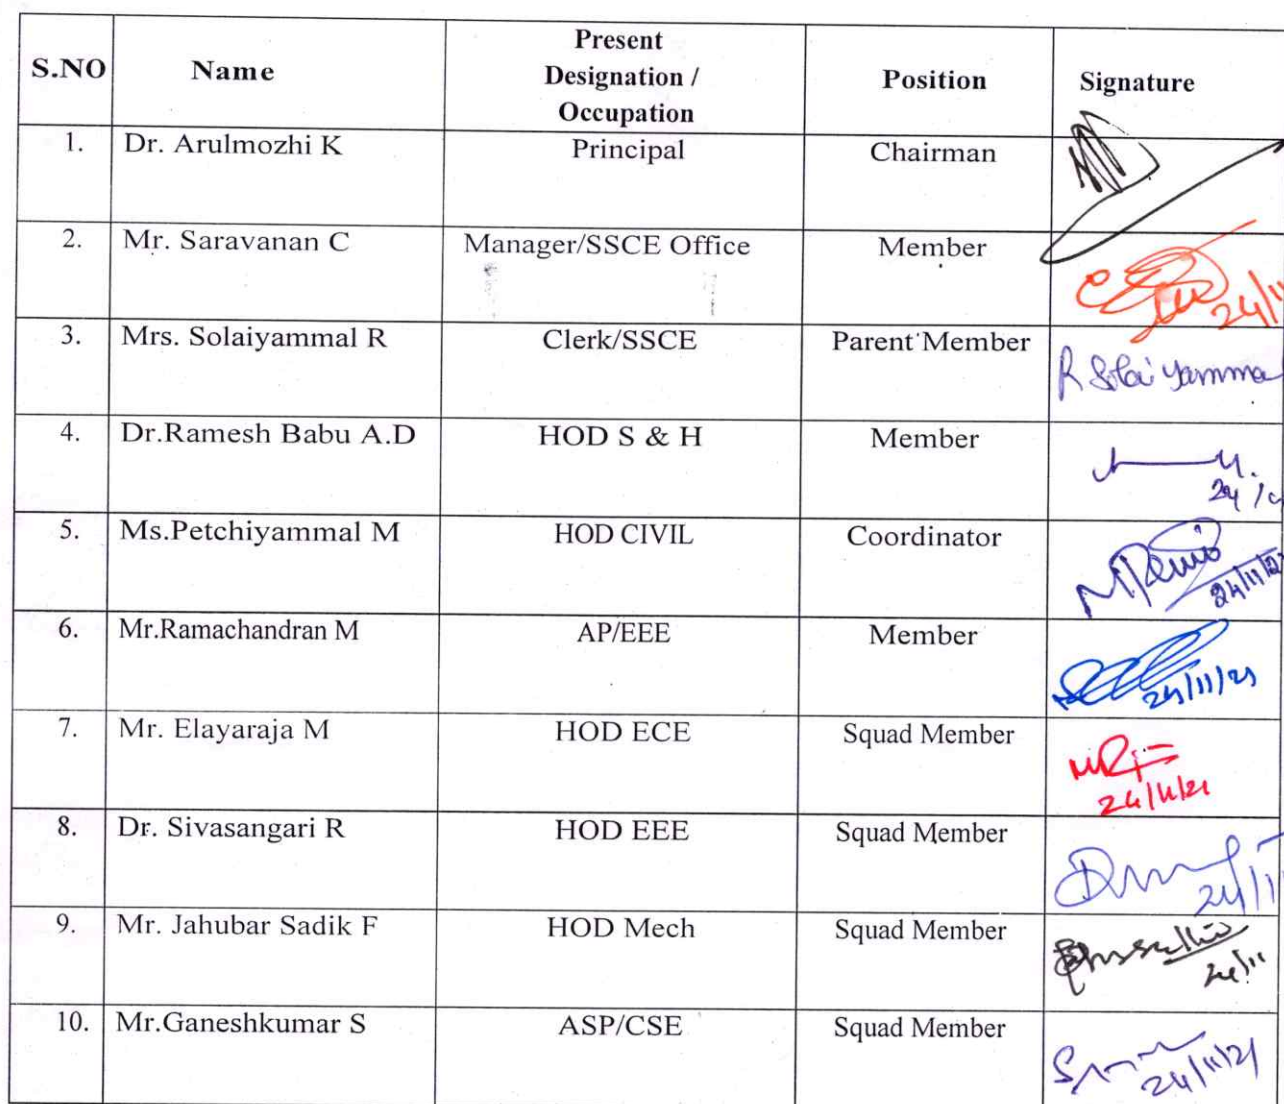 S.NO Name Present Designation / Occupation Position Signature
1. Dr. Arulmozhi K Principal Chairman
2. Mr. Saravanan C Manager/SSCE Office Member 24/11
3. Mrs. Solaiyammal R Clerk/SSCE Parent Member R Solaiyamma
4. Dr.Ramesh Babu A.D HOD S & H Member 24
5. Ms.Petchiyammal M HOD CIVIL Coordinator 24/11/2
6. Mr.Ramachandran M AP/EEE Member 24/11/21
7. Mr. Elayaraja M HOD ECE Squad Member 24/11/21
8. Dr. Sivasangari R HOD EEE Squad Member 24/11
9. Mr. Jahubar Sadik F HOD Mech Squad Member 24/11
10. Mr.Ganeshkumar S ASP/CSE Squad Member 24/11/21